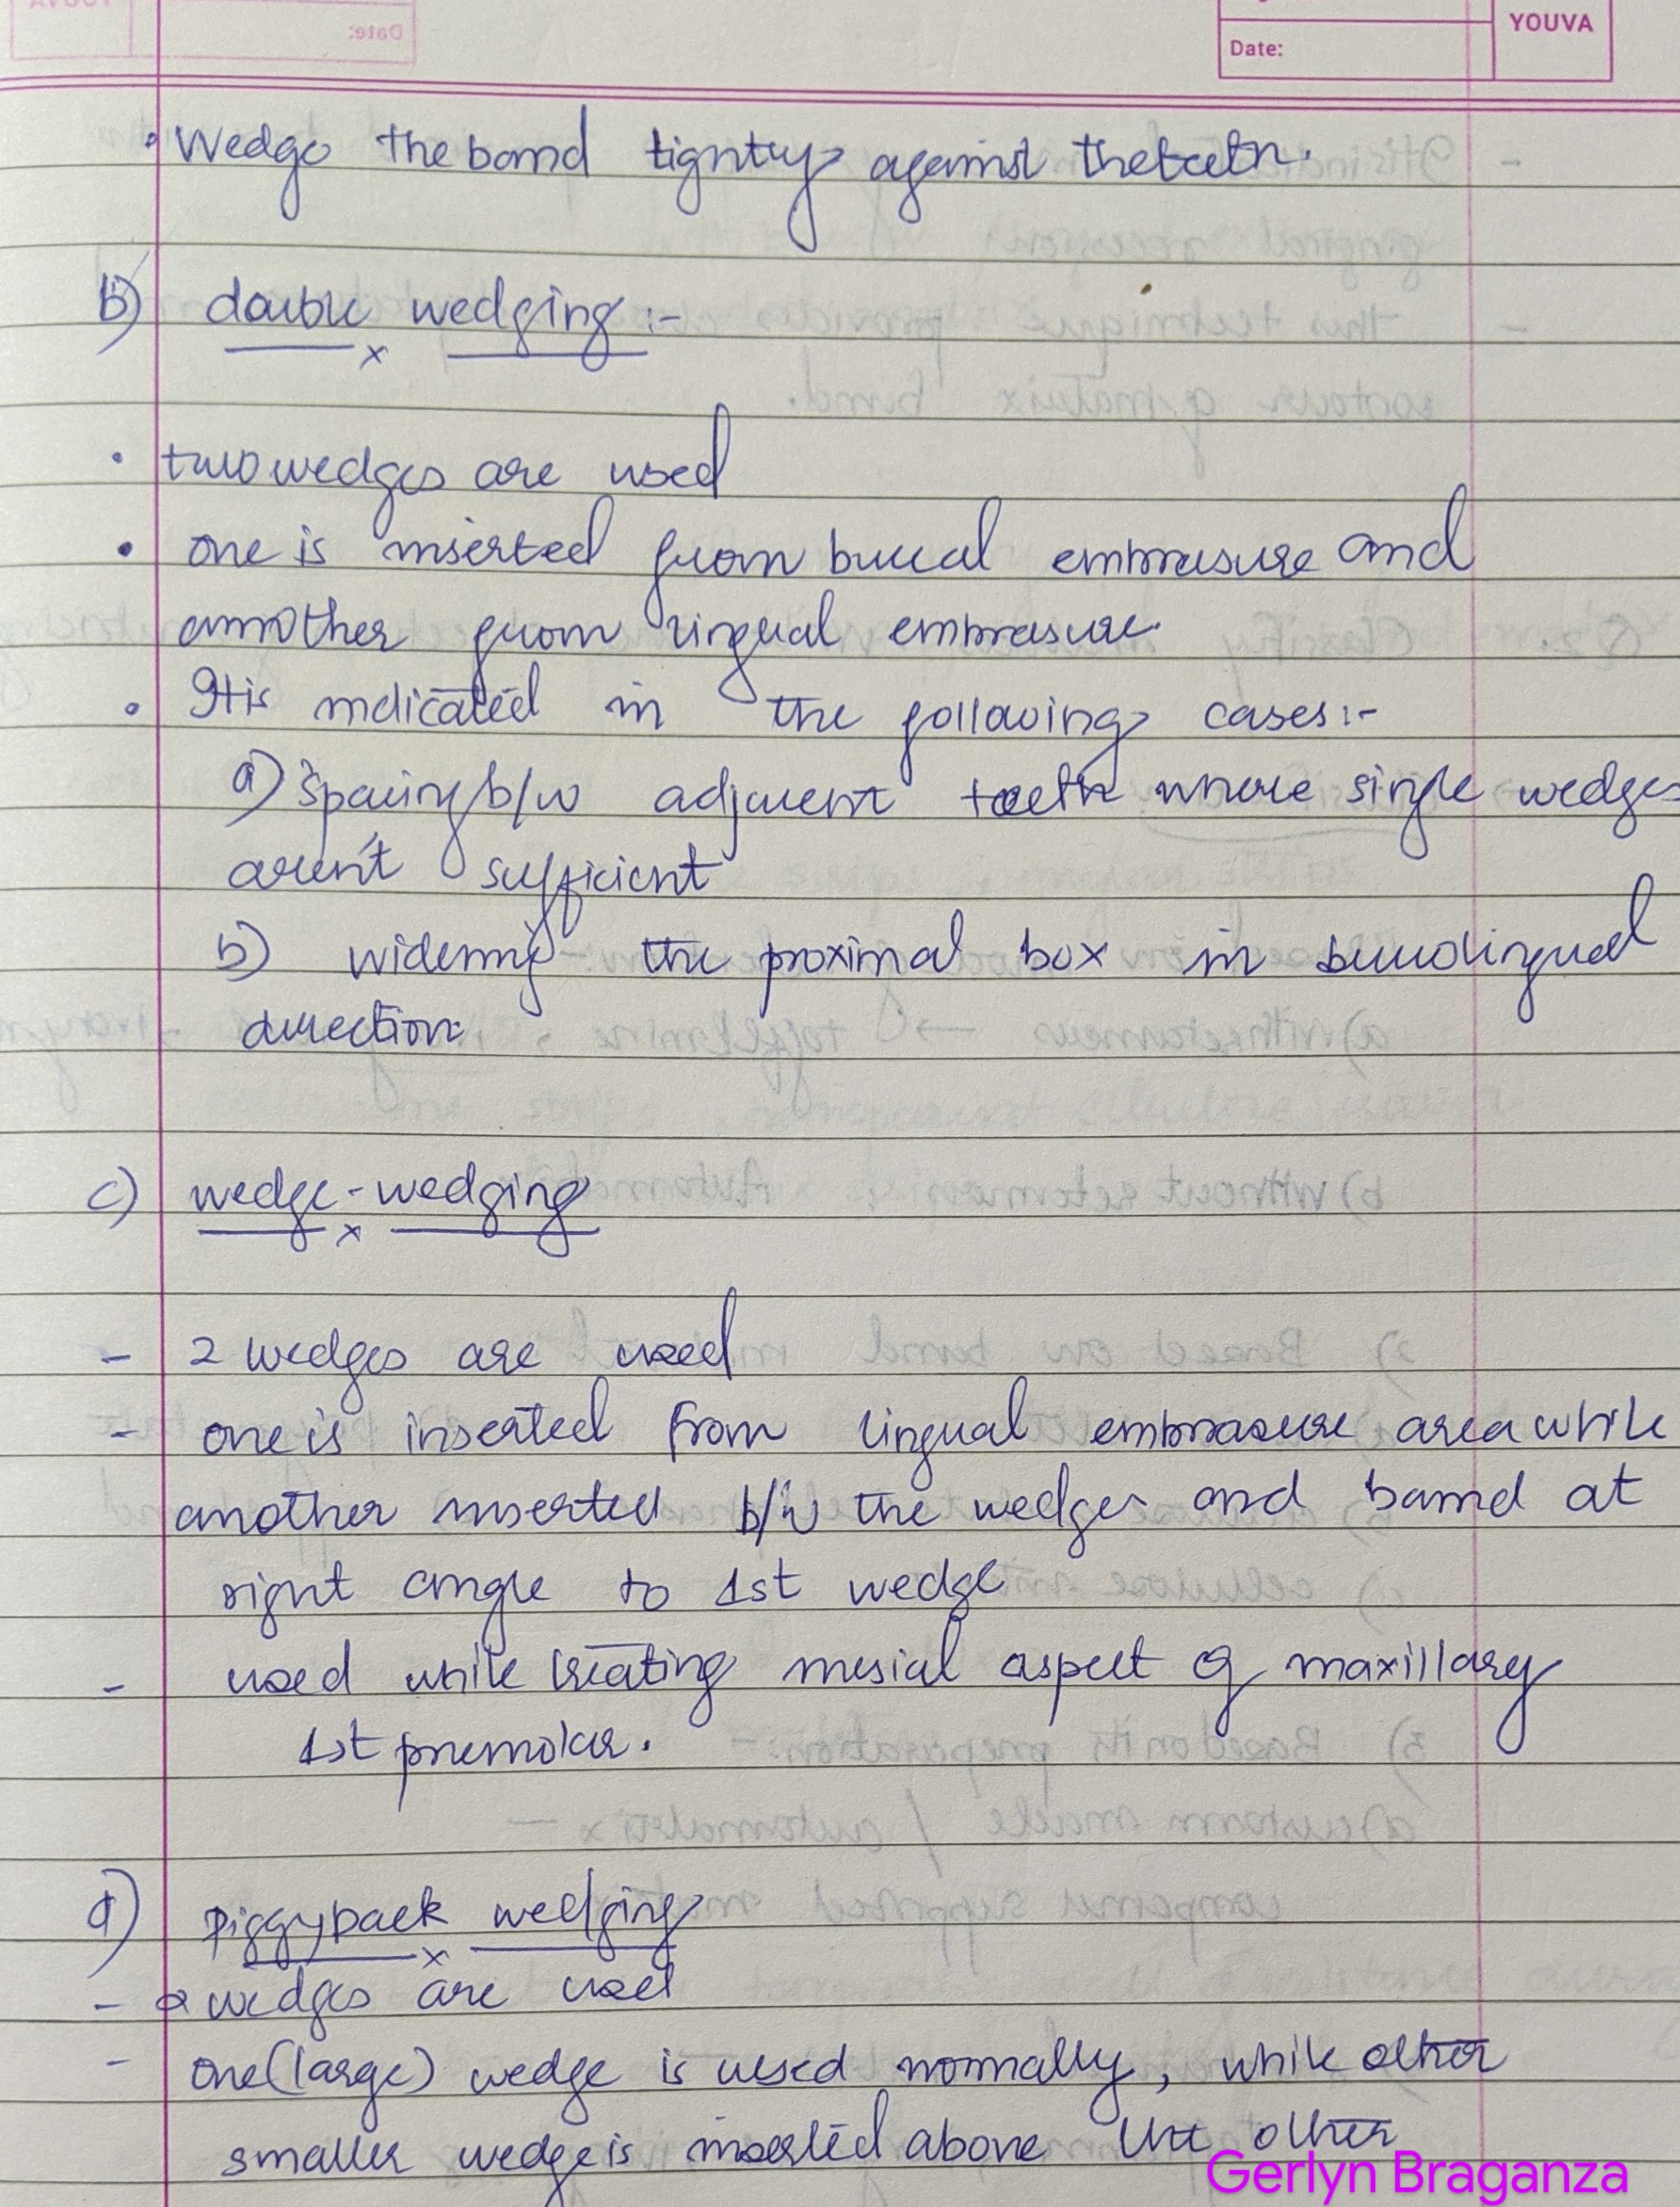 YOUVA
Date:
• Wedge the band tightly against the teeth.
b) double wedging :-
• two wedges are used
• one is inserted from buccal embrasure and
another from lingual embrasure.
• It is indicated in the following cases:-
a) spacing b/w adjacent teeth where single wedges
aren't sufficient
b) widening the proximal box in buccolingual
direction.
c) wedge-wedging
- 2 wedges are used
- one is inserted from lingual embrasure area while
another inserted b/w the wedge and band at
right angle to 1st wedge
- used while treating mesial aspect of maxillary
1st premolar.
d) piggyback wedging
- 2 wedges are used
- one (large) wedge is used normally, while other
smaller wedge is inserted above the other
Gerlyn Braganza